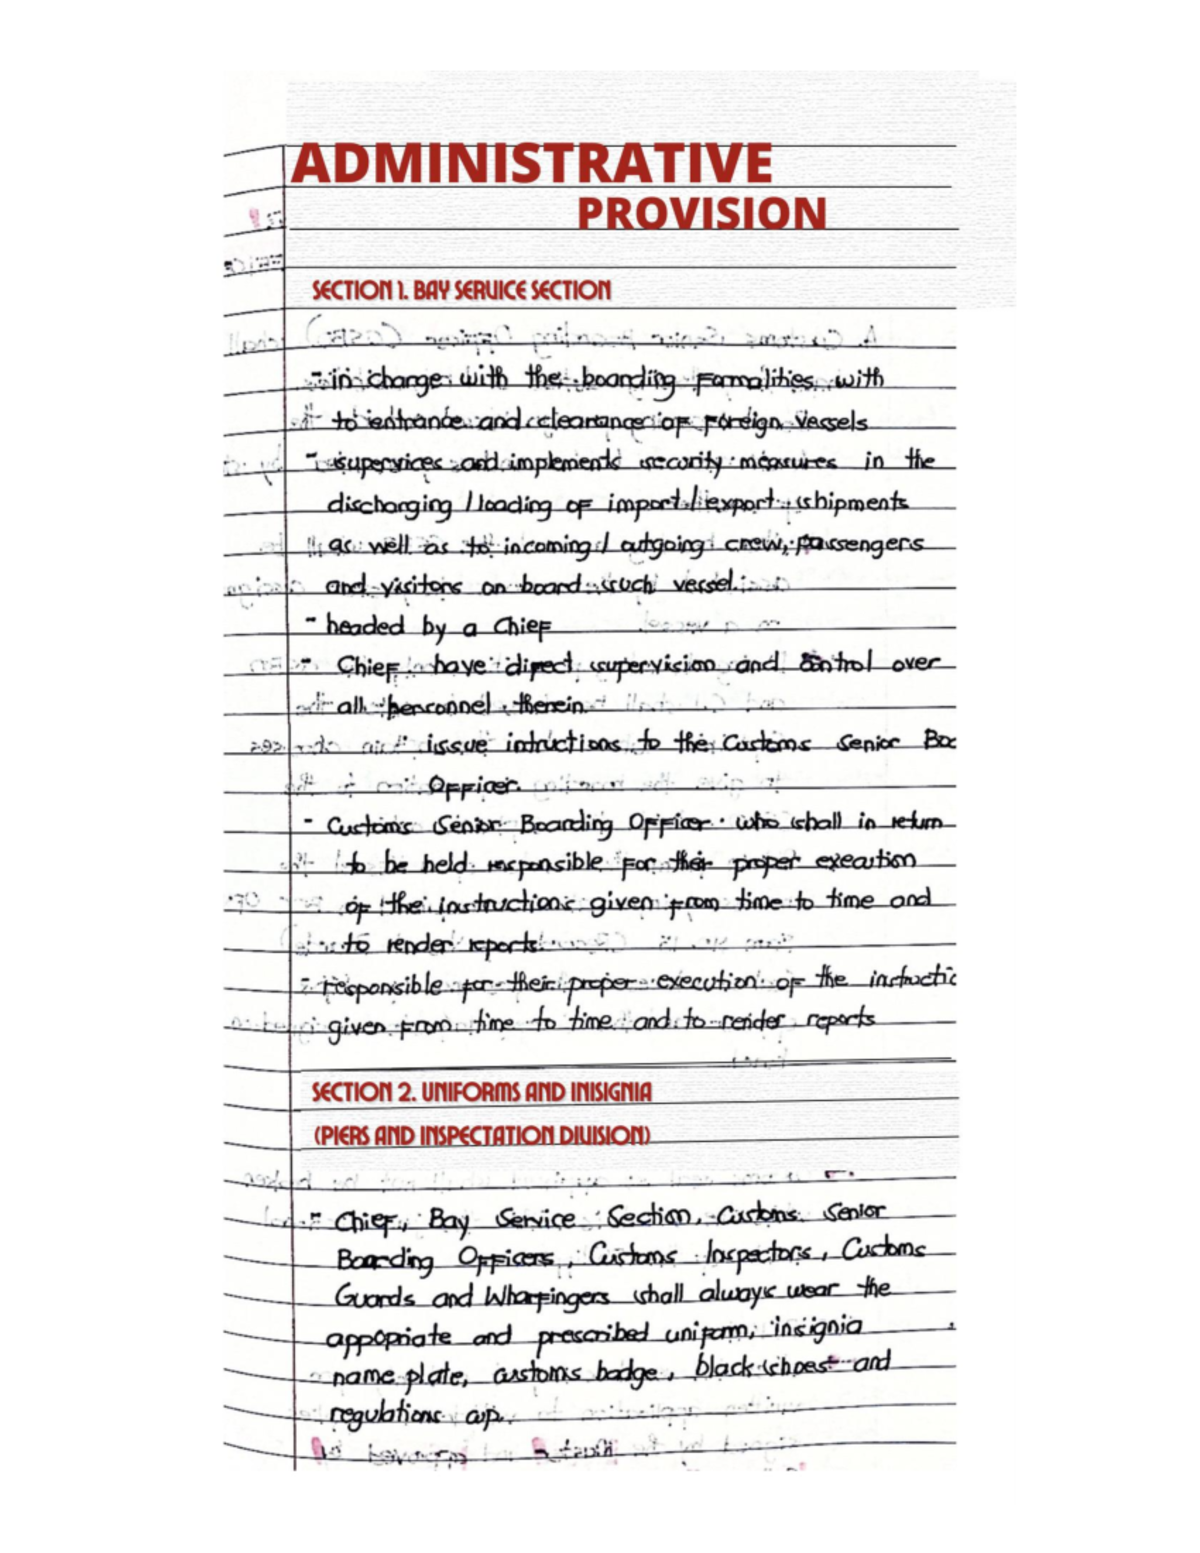 ADMINISTRATIVE
PROVISION
SECTION 1. BAY SERVICE SECTION
- in charge with the boarding formalities with
to entrance and clearance of foreign vessels
- supervices and implements security measures in the
discharging / loading of import / export shipments
as well as to incoming / outgoing crew, passengers
and visitors on board such vessel.
- headed by a Chief
- Chief have direct supervision and control over
all personnel therein.
issue intructions to the Customs Senior Boa
Officer.
- Customs Senior Boarding Officer who shall in return
to be held responsible for their proper execution
of the instructions given from time to time and
to render reports
- responsible for their proper execution of the instructio
given from time to time and to render reports
SECTION 2. UNIFORMS AND INISIGNIA
(PIERS AND INSPECTATION DIVISION)
- Chief, Bay Service Section, Customs Senior
Boarding Officers, Customs Inspectors, Customs
Guards and Wharfingers shall always wear the
appopriate and prescribed uniform, insignia
name plate, customs badge, black shoes and
regulations cap.